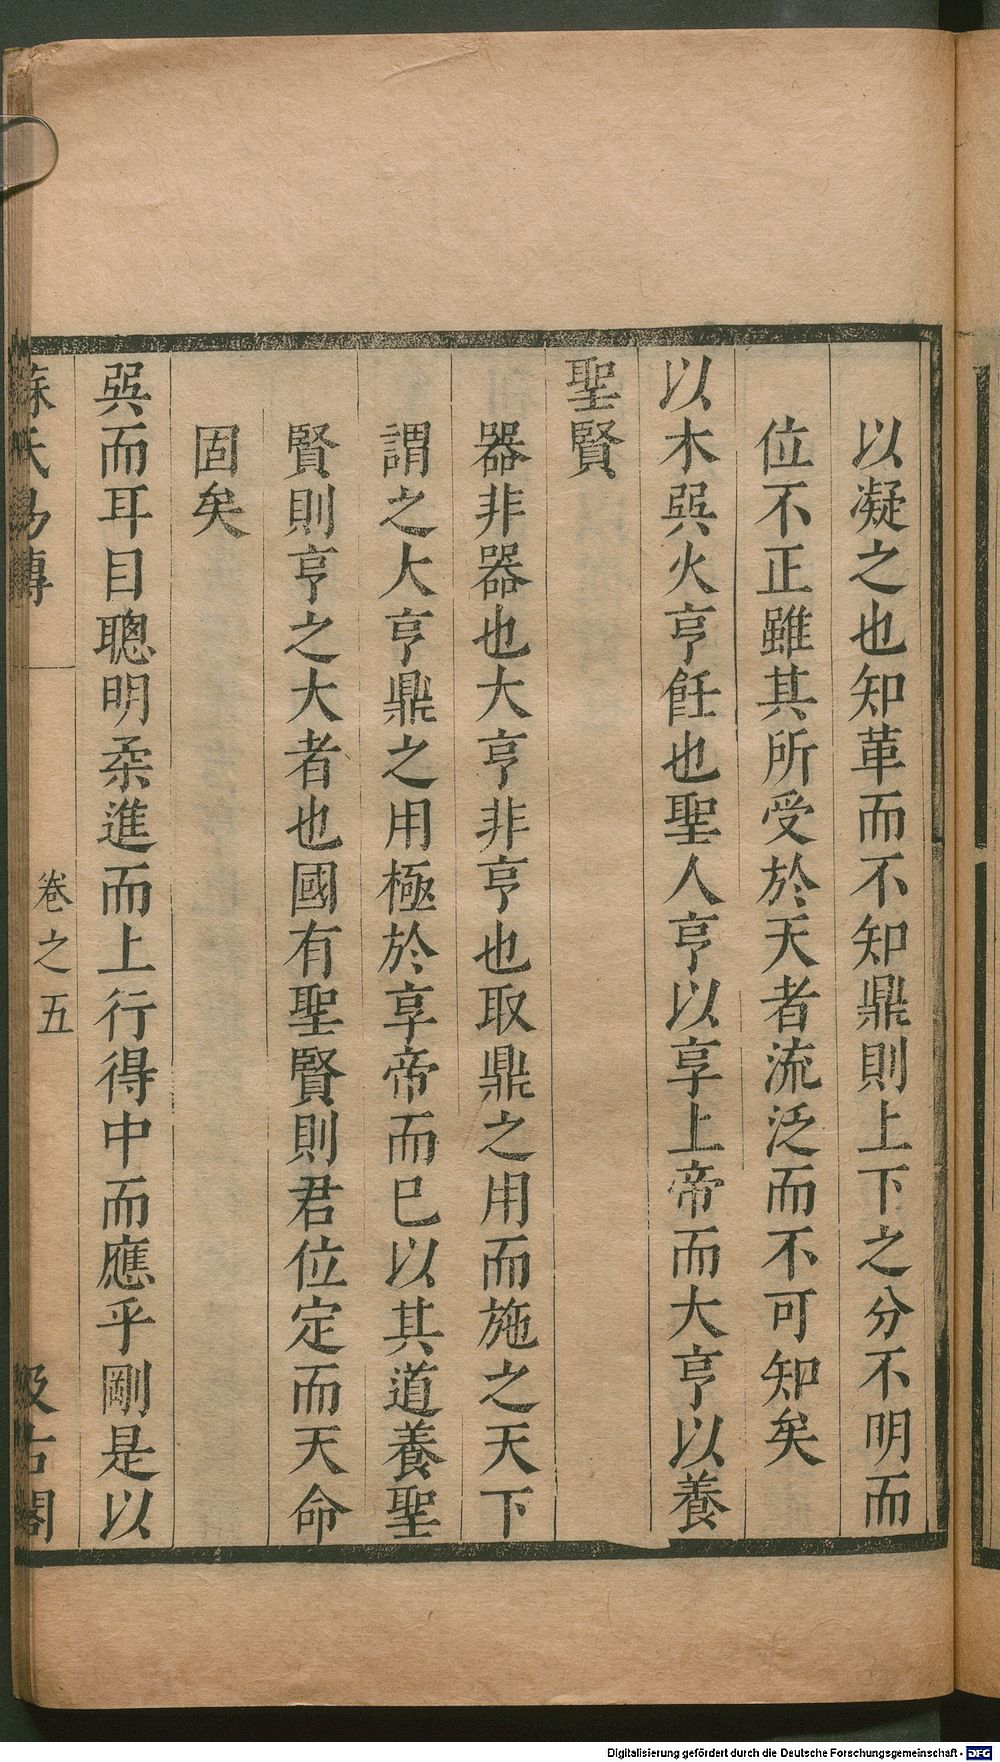 以凝之也知革而不知鼎則上下之分不明而
位不正雖其所受於天者流泛而不可知矣
以木巽火亨飪也聖人亨以享上帝而大亨以養
聖賢
器非器也大亨非亨也取鼎之用而施之天下
謂之大亨鼎之用極於享帝而已以其道養聖
賢則亨之大者也國有聖賢則君位定而天命
固矣
巽而耳目聰明柔進而上行得中而應乎剛是以
蘇氏易傳
卷之五
汲古閣
Digitalisierung gefördert durch die Deutsche Forschungsgemeinschaft - DFG